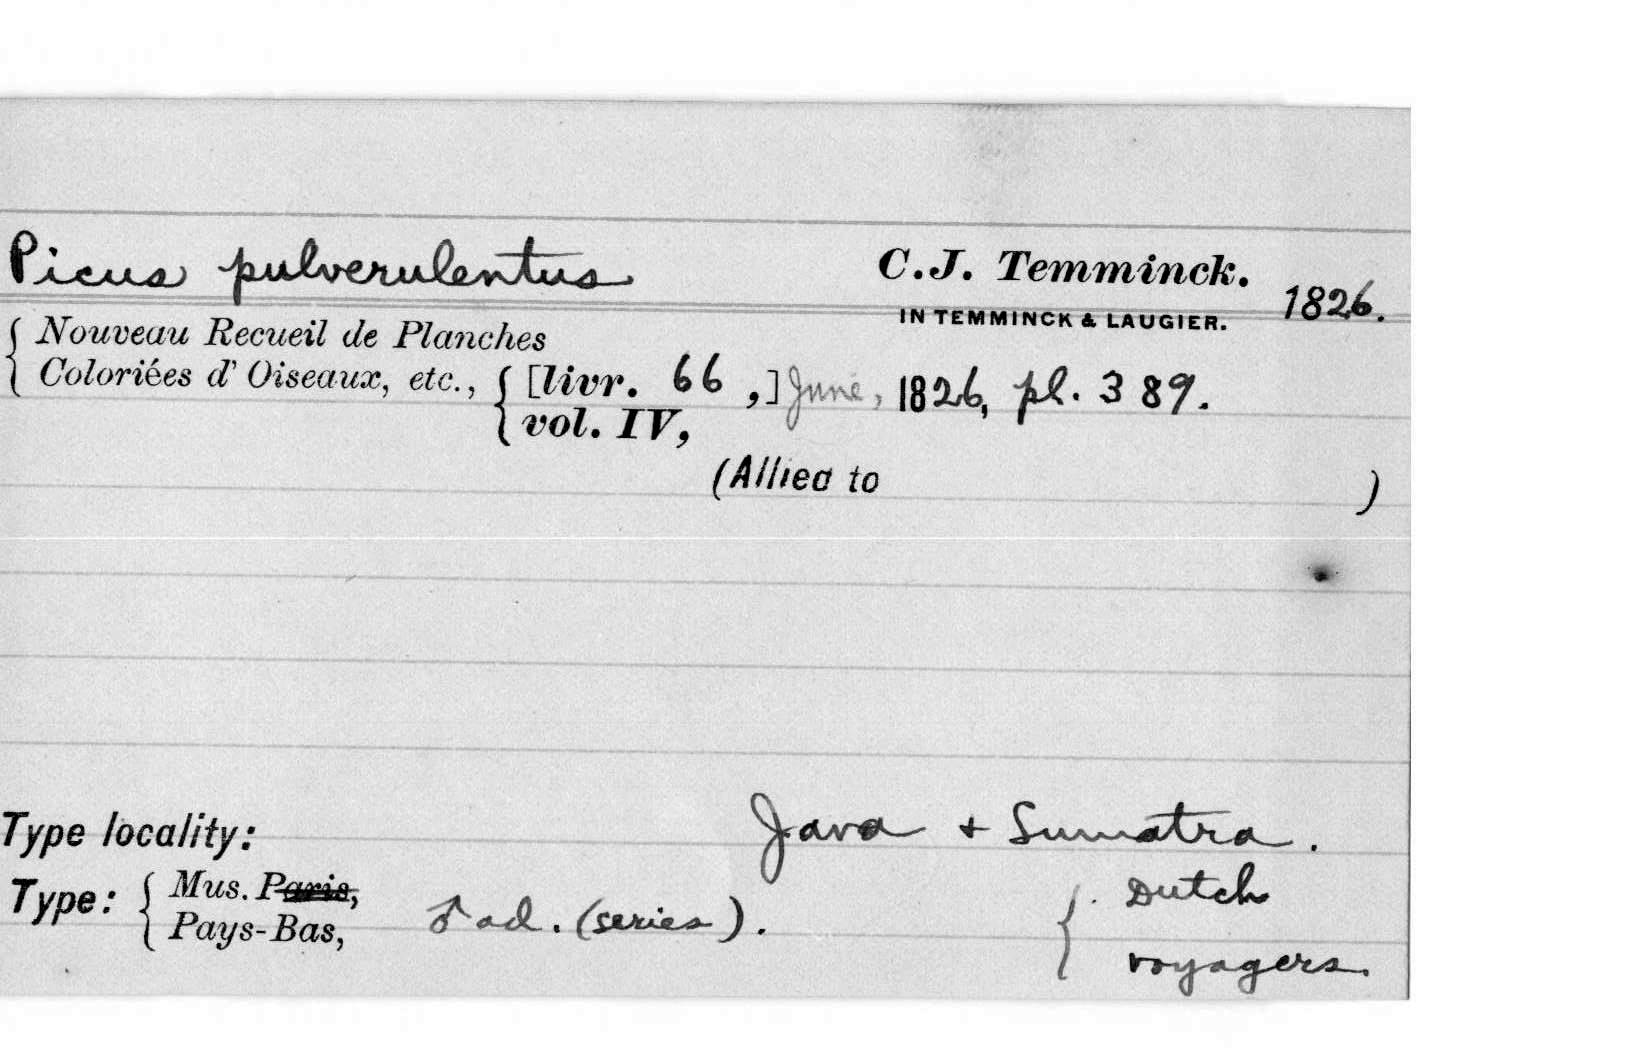 Picus pulverulentus C.J. Temminck. 1826.
IN TEMMINCK & LAUGIER.
Nouveau Recueil de Planches
Coloriées d' Oiseaux, etc., [livr. 66 ,] June, 1826, pl. 389.
vol. IV,
(Allied to )
Type locality: Java + Sumatra.
Type: Mus. Paris, Dutch
Pays-Bas, ♂ ad. (series). voyagers.